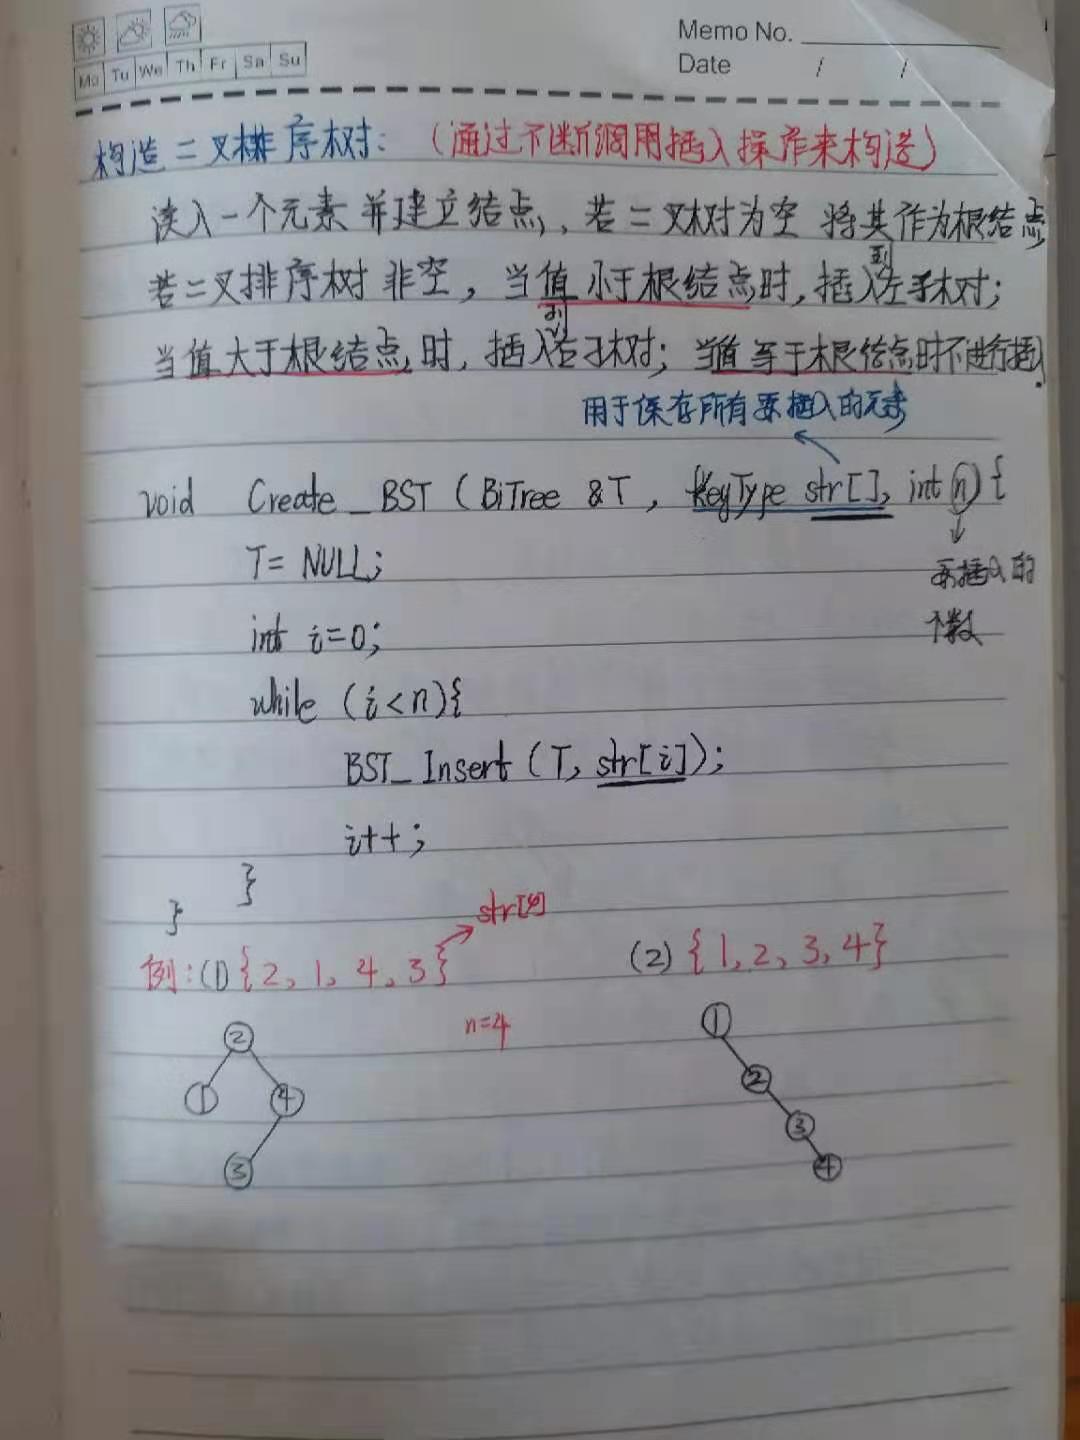 Memo No.
Mo Tu We Th Fr Sa Su
Date / /
构造二叉排序树：（通过不断调用插入操作来构造）
读入一个元素并建立结点，若二叉树为空 将其作为根结点
若二叉排序树 非空，当值小于根结点时，插入到左子树；
当值大于根结点时，插入到右子树；当值等于根结点时不进行插入.
用于保存所有要插入的元素
void Create_BST (BiTree &T, KeyType str[], int n) {
T= NULL;
要插入的
个数
int i=0;
while (i<n){
BST_Insert (T, str[i]);
i++;
}
}
str[4]
例：(1) {2, 1, 4, 3}
(2) {1, 2, 3, 4}
n=4
2
1 4
3
1
2
3
4